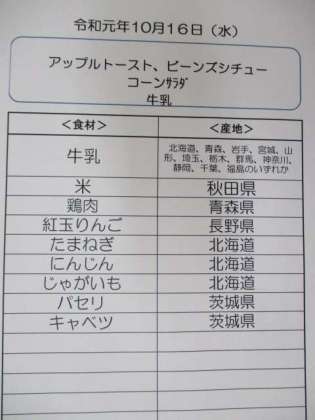 令和元年10月16日（水）
アップルトースト、ビーンズシチュー
コーンサラダ
牛乳
＜食材＞ ＜産地＞
牛乳 北海道、青森、岩手、宮城、山
形、埼玉、栃木、群馬、神奈川、
静岡、千葉、福島のいずれか
米 秋田県
鶏肉 青森県
紅玉りんご 長野県
たまねぎ 北海道
にんじん 北海道
じゃがいも 北海道
パセリ 茨城県
キャベツ 茨城県